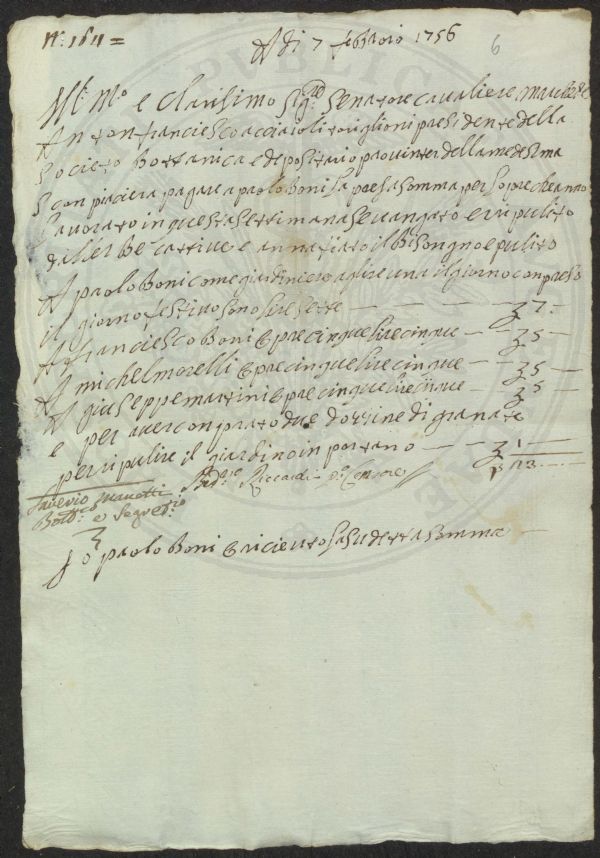 N: 1611 =
A di 7 febbraio 1756
6
Ill: Mo e Clarisimo Sigre Senatore Cavaliere Marchese
Antonfranciesco acciaioli toriglioni presidente della
Societa Bottanica e depositario prointer della medesima
Si conpiacera pagare a paolo Boni la presa somma per lopre che anno
lavorato in questa settimana se vangato e ripulito
dallerbe cattive e annafiato il bisongno e pulito
A paolo Boni come giardiniero a lire una il giorno conpreso
il giorno festivo sono lire sette — — — — 7 —
A franciesco Boni opre cinque lire cinque — 5 —
A michel morelli opre cinque lire cinque — 5 —
A giuseppe martini opre cinque lire cinque — 5 —
e per aver conprato due dozzine di granate
per ripulire il giardino in portano — — 1 —
23 —
Saverio Manetti
Botto e Segretro
Riccardi Po Censore
Io paolo Boni o riceuto la sudetta somma —